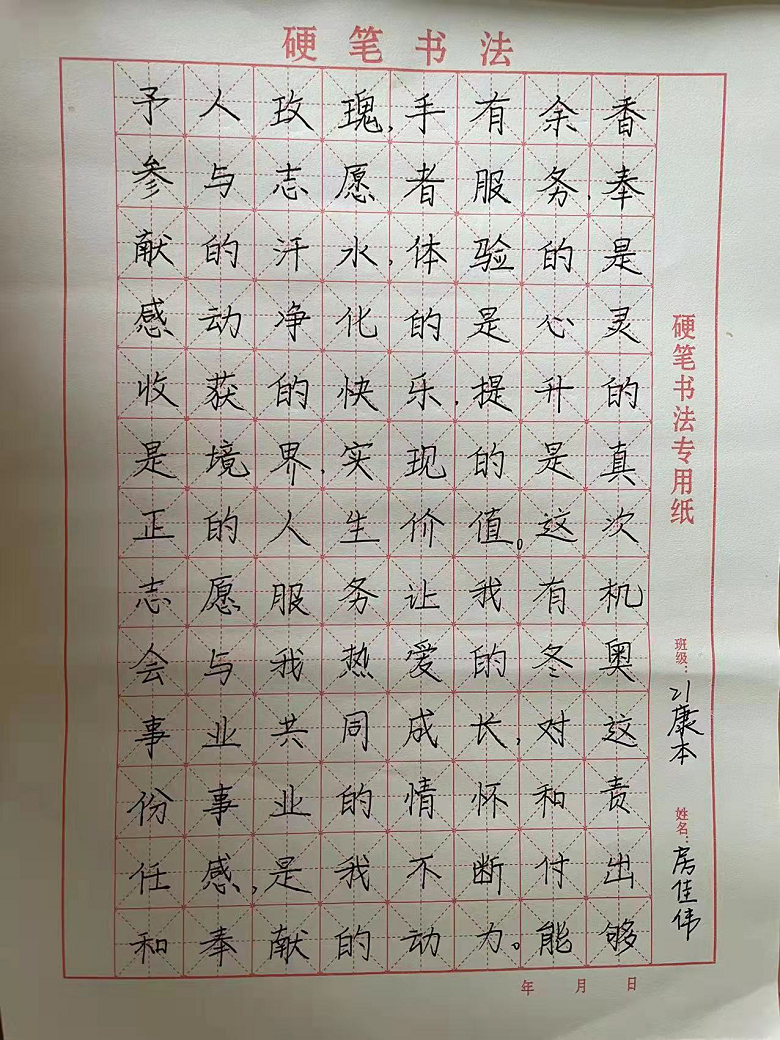 硬笔书法
予人玫瑰,手有余香
参与志愿者服务,奉
献的汗水,体验的是
感动净化的是心灵
收获的快乐,提升的
是境界,实现的是真
正的人生价值。这次
志愿服务让我有机
会与我热爱的冬奥
事业共同成长,对这
份事业的情怀和责
任感,是我不断付出
和奉献的动力。能够
硬笔书法专用纸
班级:21康本
姓名:房佳伟
年 月 日